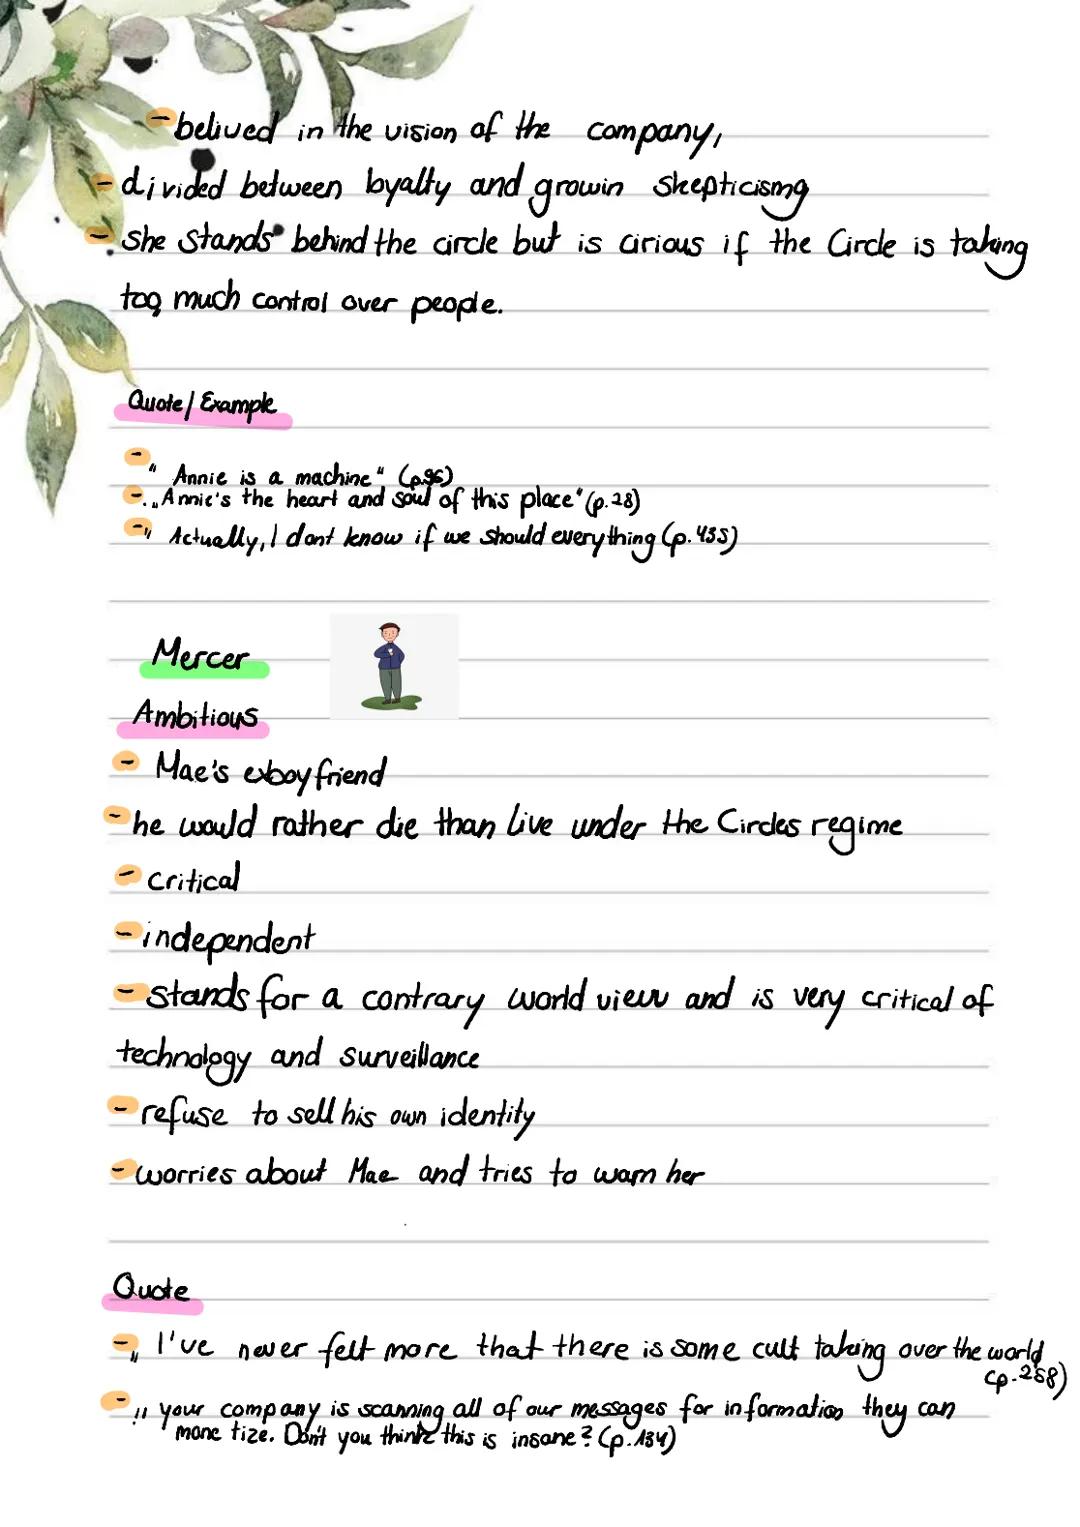 - belived in the vision of the company,
- divided between loyalty and growin skepticismg
- she stands behind the circle but is cirious if the Circle is taking
too much control over people.
Quote/ Example
- " Annie is a machine" (p.96)
- „Annie's the heart and soul of this place" (p.28)
- „ Actually, I dont know if we should everything (p.435)
Mercer
Ambitious
- Mae's exboyfriend
- he would rather die than live under the Circles regime
- critical
- independent
- stands for a contrary world view and is very critical of
technology and surveillance
- refuse to sell his own identity
- worries about Mae and tries to warn her
Quote
- „ I've never felt more that there is some cult taking over the world
(p.258)
- „ your company is scanning all of our messages for information they can
mone tize. Don't you think this is insane? (p.134)